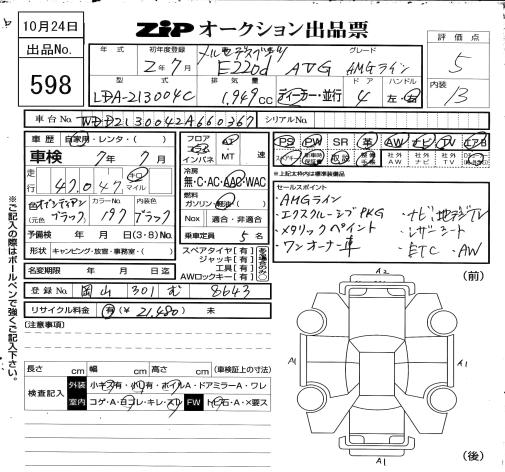 10月24日
ZiP オークション出品票
出品No.
598
評価点
5
内装
B
年式
初年度登録
2年7月
メルセデスベンツ
E220d AVG
グレード
AMGライン
型式
LDA-213004C
排気量
1,949cc
ディーラー・並行
ドア
4
ハンドル
左・右
車台No.
WDD2130042A660367
シリアルNo.
車歴
自家用・レンタ・( )
車検
7年7月
走行
47,047
キロ
マイル
色
(元色 ブラック)
カラーNo.
197
内装
ブラック
予備検 年 月 日(3・8)No.
形状 キャンピング・放宿・事務室・( )
名変期限 年 月 日迄
フロア
コラム
インパネ
AT
MT 速
冷房
無・C・AC・AAC・WAC
燃料
ガソリン・軽油( )
Nox 適合・非適合
乗車定員 5名
スペアタイヤ[有]
ジャッキ[有]
工具[有]
AWロックキー[有]
PS PW SR 革 AW ナビ TV エアB
取説
社外AW
社外ナビ
社外TV
*上記太わ内は標準装備品
セールスポイント
・AMGライン
・エクスクルーシブPKG ・ナビ地デジTV
・メタリックペイント ・レザーシート
・ワンオーナー車 ・ETC ・AW
登録No.
岡山 301 む 8643
リサイクル料金 有(¥21,480) 未
(注意事項)
長さ cm 幅 cm 高さ cm (車検証上の寸法)
検査記入
外装 小キズ有・小凹有・ホイルA・ドアミラーA・ワレ
室内 コゲ・A・白ヨゴレ・キレ・スレ FW トビ石・A・×要ス
※ご記入の際はボールペンで強くご記入下さい。
(前)
A2
A1
A1
A1
(後)